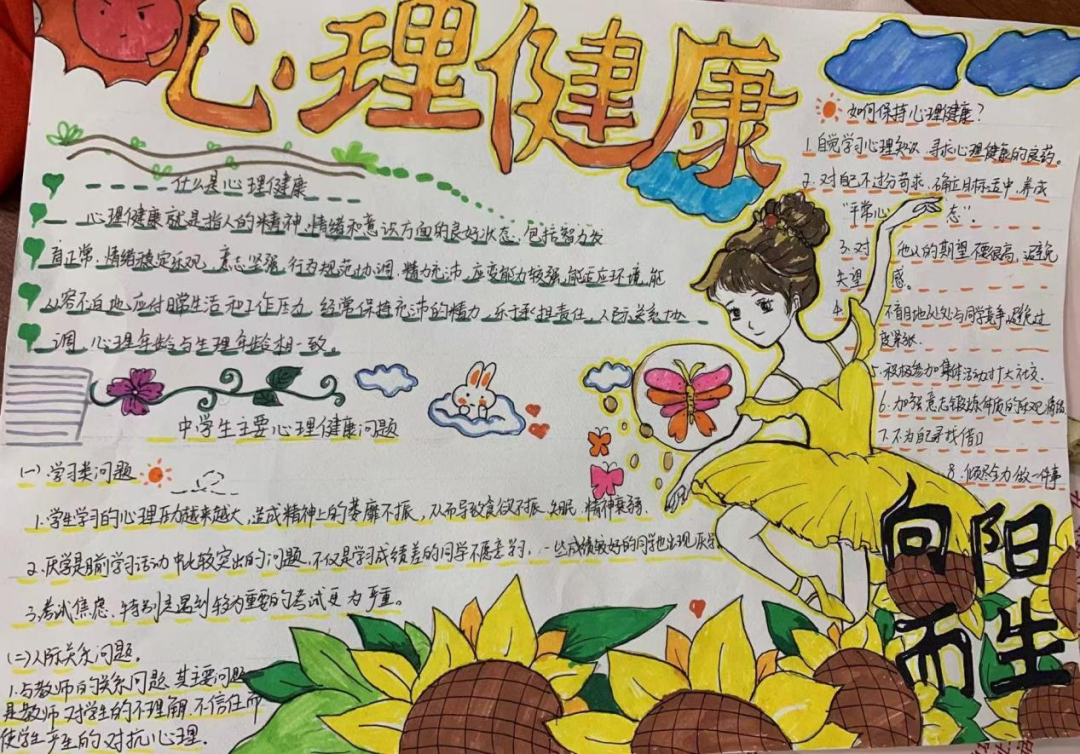 心理健康
什么是心理健康
心理健康就是指人的精神、情绪和意识方面的良好状态，包括智力发
育正常，情绪稳定乐观，意志坚强，行为规范协调，精力充沛，应变能力较强，能适应环境，能
从容不迫地应付日常生活和工作压力，经常保持充沛的精力，乐于承担责任，人际关系协
调，心理年龄与生理年龄相一致。
中学生主要心理健康问题
(一)学习类问题
1.学生学习的心理压力越来越大，造成精神上的萎靡不振，从而导致食欲不振、失眠、精神衰弱.
2.厌学是目前学习活动中比较突出的问题，不仅是学习成绩差的同学不愿意学习，一些成绩较好的同学也出现厌学
3.考试焦虑、特别是遇到较为重要的考试更为严重。
(二)人际关系问题.
1.与教师的关系问题.其主要问题
是教师对学生的不理解、不信任而
使学生产生的对抗心理.
如何保持心理健康？
1.自觉学习心理知识 寻求心理健康的良药。
2.对自己不过分苛求.确立目标适中，养成
“平常心态”.
3.对他人的期望不要很高，避免
失望感。
4.不盲目地处处与同学竞争.避免过
度紧张.
5.积极参加集体活动扩大社交.
6.加强意志锻炼体质的乐观情绪
7.不为自己寻找借口
8.倾尽全力做一件事
向阳
而生